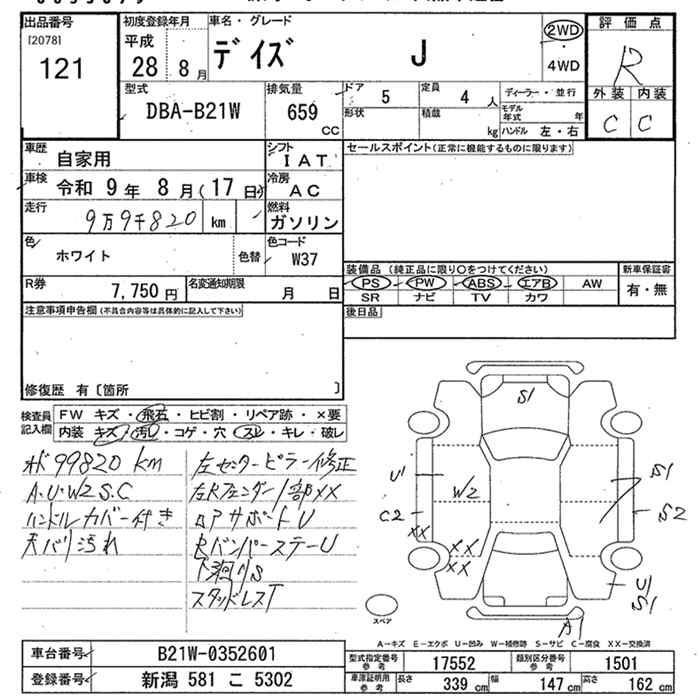 出品番号
[2078]
121
初度登録年月
平成
28 8月
車名・グレード
デイズ J
2WD
・
4WD
評価点
R
外装 内装
C C
型式
DBA-B21W
排気量
659
CC
ドア 5
定員 4 人
ディーラー・並行
形状
積載 kg
モデル年式 年
ハンドル 左・右
車歴
自家用
シフト
I A T
セールスポイント(正常に機能するものに限ります)
車検
令和 9年 8月(17日)
冷房
A C
走行
9万9千820 km
燃料
ガソリン
色
ホワイト
色替
色コード
W37
装備品 (純正品に限り○をつけてください)
新車保証書
PS PW ABS エアB AW
有・無
SR ナビ TV カワ
R券
7,750 円
名変通知期限
月 日
後日品
注意事項申告欄(不具合内容等は具体的に記入して下さい)
修復歴 有〔箇所 〕
検査員記入欄
FW キズ・飛石・ヒビ割・リペア跡・×要
内装 キズ・汚レ・コゲ・穴・スレ・キレ・破レ
メーター 99820 km
A・U・W2 S.C
ハンドルカバー付き
天バリ汚れ
左センターピラー修正
左Rフェンダー1部XX
ロアサポートU
RバンパーステーU
下廻りS
スタッドレスT
S1
U1
W2
C2
XX
XX
XX
S1
S2
U1
S1
A1
スペア
A-キズ E-エクボ U-凹み W-補修跡 S-サビ C-腐食 XX-交換済
車台番号
B21W-0352601
登録番号
新潟 581 こ 5302
型式指定番号 参考
17552
類別区分番号 参考
1501
車庫証明用 参考
長さ 339 cm
幅 147 cm
高さ 162 cm